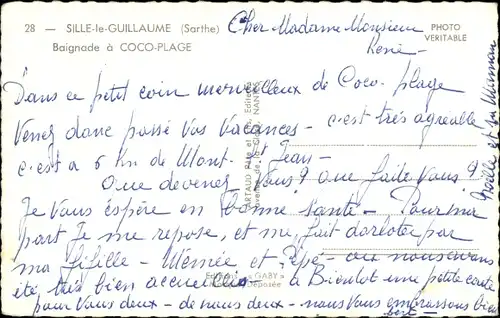 28 — SILLE-le-GUILLAUME (Sarthe)
Baignade à COCO-PLAGE
PHOTO
VERITABLE
Cher Madame Monsieur
René –
Dans ce petit coin merveilleux de Coco plage
Venez donc passé vos Vacances – c'est très agréable
c'est a 6 Km de Mont. St Jean –
Que devenez Vous? que faite Vous?
Je Vous éspère en bonne santé – Pour ma
part Je me repose, et me fait dorloté par
ma fifille – Mémée et Pépé – ou nous avons
été très bien accueillis – à Bientot une petite carte
pour Vous deux – de nous deux – nous Vous embrassons bien
fort –
ARTAUD Père et Fils, Editeurs
NANTES
Editions « GABY »
Déposée